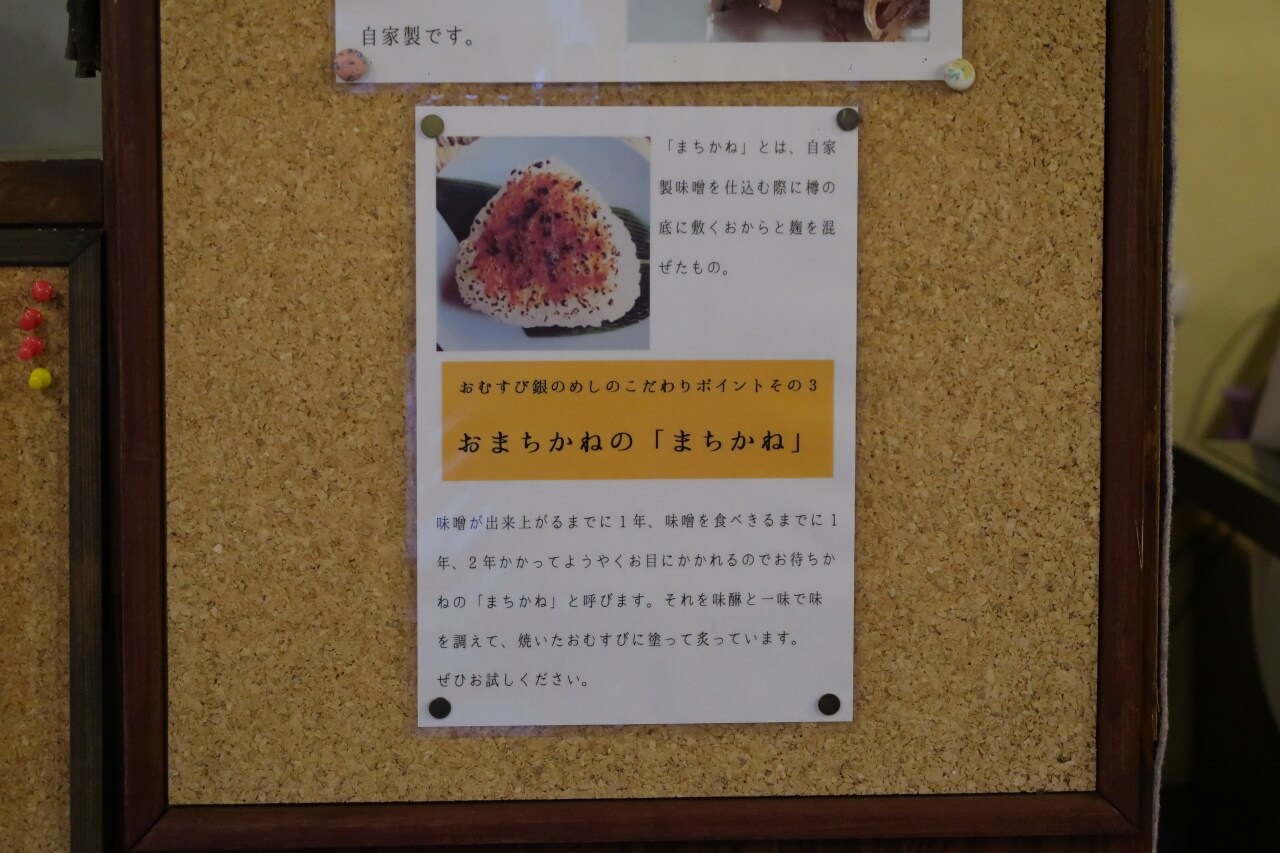 自家製です。
「まちかね」とは、自家
製味噌を仕込む際に樽の
底に敷くおからと麹を混
ぜたもの。
おむすび銀のめしのこだわりポイントその3
おまちかねの「まちかね」
味噌が出来上がるまでに1年、味噌を食べきるまでに1
年、2年かかってようやくお目にかかれるのでお待ちか
ねの「まちかね」と呼びます。それを味醂と一味で味
を調えて、焼いたおむすびに塗って炙っています。
ぜひお試しください。